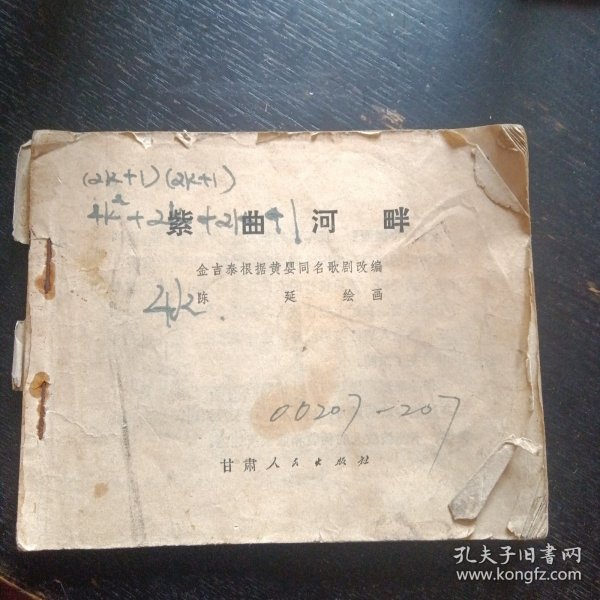 (2k+1)(2k+1)
紫曲河畔
金吉泰根据黄婴同名歌剧改编
陈延绘画
00207-207
甘肃人民出版社
孔夫子旧书网
www.kongfz.com